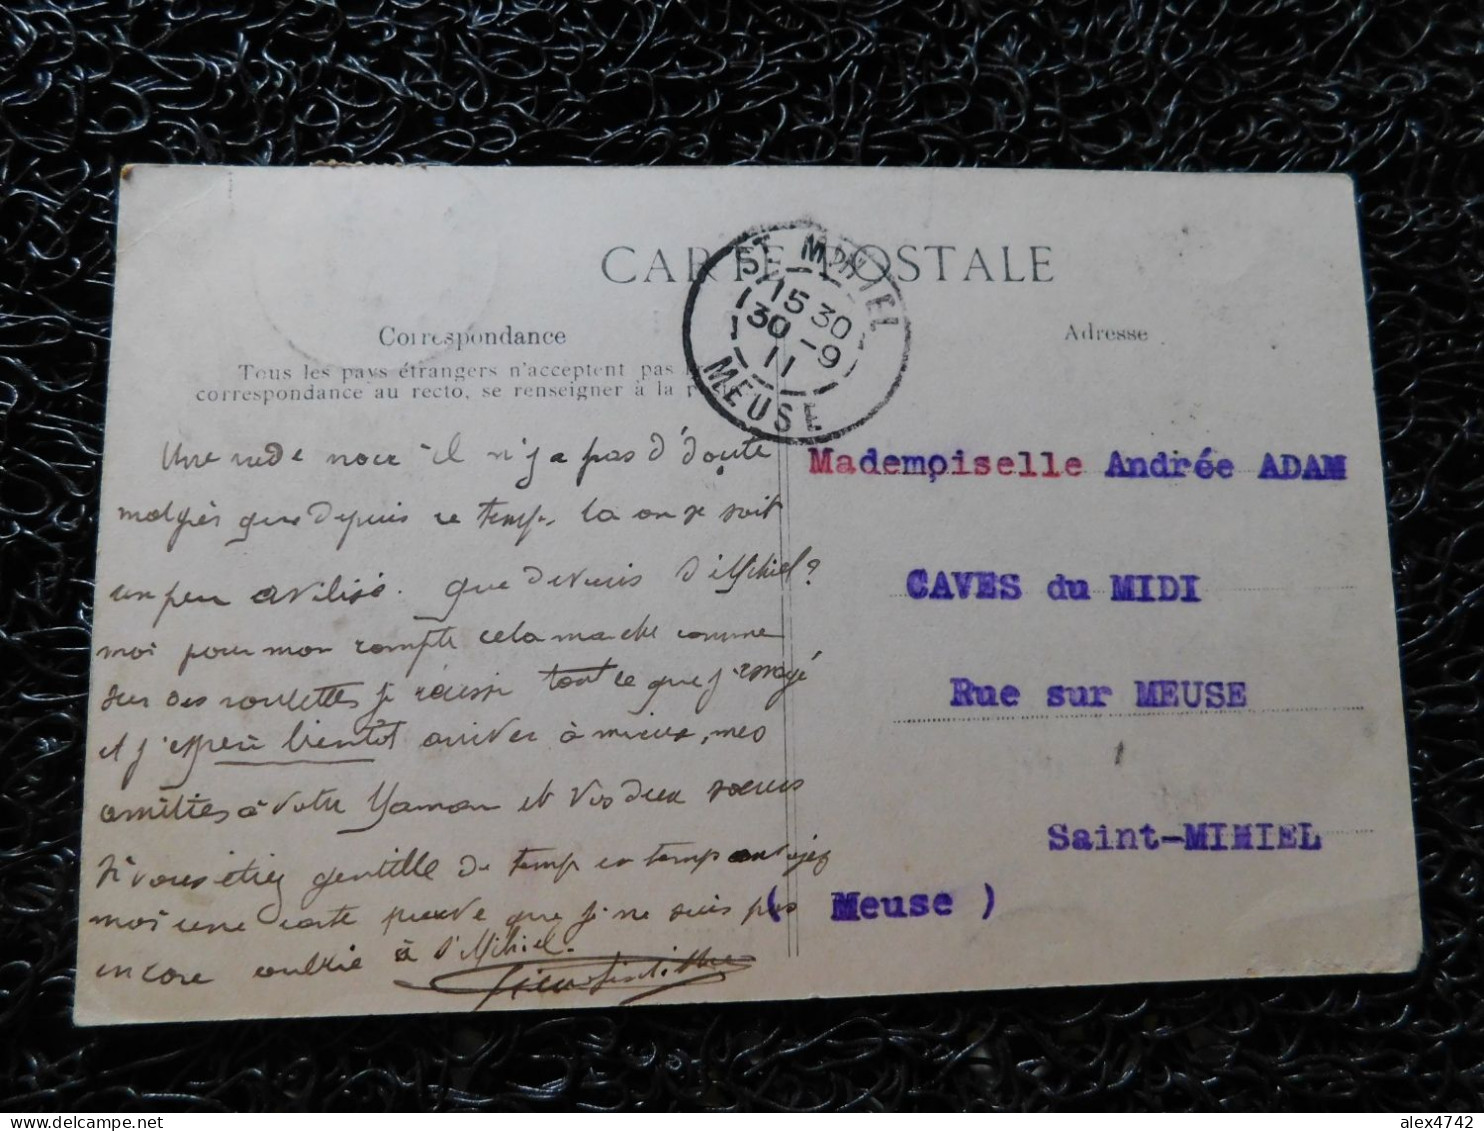 CARTE POSTALE
ST MIHIEL
15 30
30 - 9
11
MEUSE
Correspondance
Tous les pays étrangers n'acceptent pas
correspondance au recto, se renseigner à la
Adresse
Une noce il n'y a pas d'doute
malgrés que depuis ce temps la on se soit
un peu avilisé. que devenis d'Mihiel?
moi pour mon compte cela marche comme
sur des roulettes je réussi tout ce que j'essayé
et j'espère bientôt arriver à mieux, mes
amitiés à votre Maman et vos deux soeurs
Si vous étiez gentille de temp en temp envojez
moi une carte preuve que je ne suis pas
encore oublié à S'Mihiel.
Mademoiselle Andrée ADAM
CAVES du MIDI
Rue sur MEUSE
Saint-MIHIEL
( Meuse )
alex4742